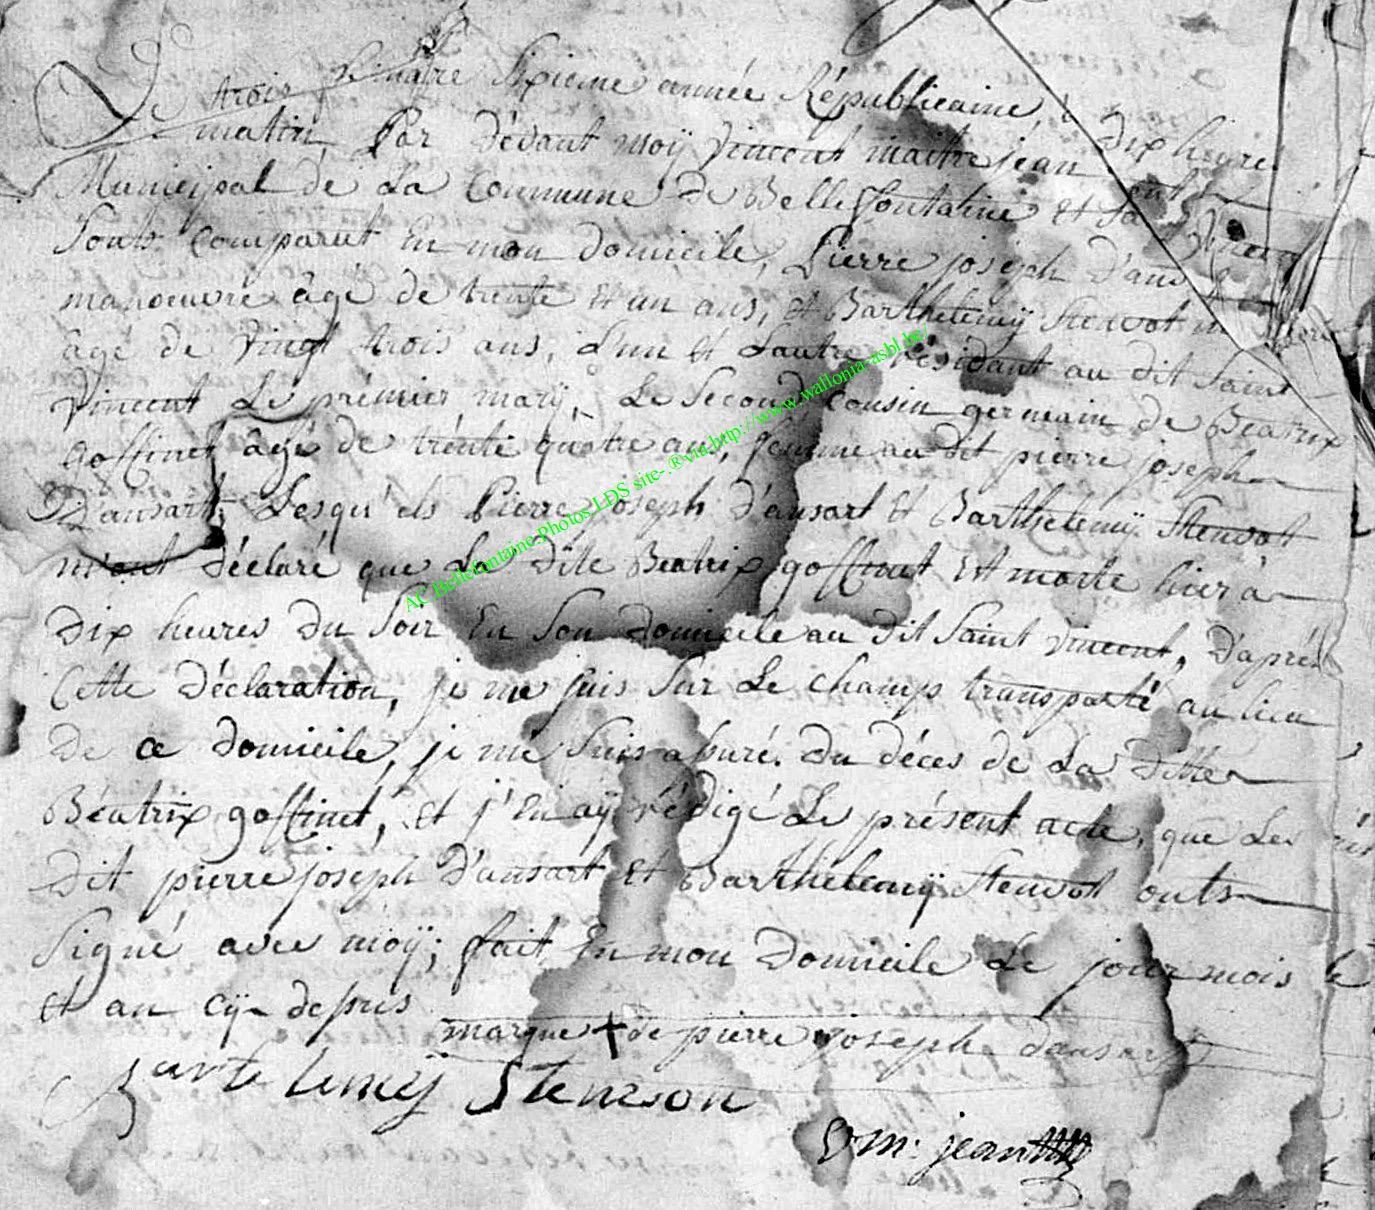 Le trois Sixieme année Républicaine, à Dix heures
matin Par Dévant moÿ vincent maitrejean
Municipal dé La Commune De Bellefontaine et
Sonts Comparut En mon Domicile, Pierre joseph D'ansart
manoeuvré âgé dé trente et un ans, et Barthelemÿ Stenvot
âgé de vingt trois ans, L'un et L'autre résidant au dit Saint
Vincent Lé prémier, marÿ, Le Second Cousin germain de Béatrix
goffinet âgé de trénte quâtre ans, femme au dit pierre joseph
D'ansart, Lesqu'els Pierre joseph D'ansart Et Barthelemÿ Stenvot
m'ont déclaré que La Dite Beatrix goffinet Est morte hier à
Dix heures Du Soir En Son Domicile au dit Saint Vincent, D'aprés
Cette Déclaration, je me suis Sur Le champs transporté au lieu
De ce Domicile, je mé Suis assuré. Du déces de La Ditte
Béatrix goffinet, Et j'En aÿ rédigé Le présent acte, que Les
Dit pierre joseph D'ansart Et Barthelemÿ Stenvot onts
Signé avec moÿ; fait En mon Domicile Le jour mois
Et an cÿ dessus
marque + de pierre joseph dansart
Bartelemÿ Stenvon
V m: jean
AC Bellefontaine.Photos LDS site-.®via http://www.wallonia-asbl.be/